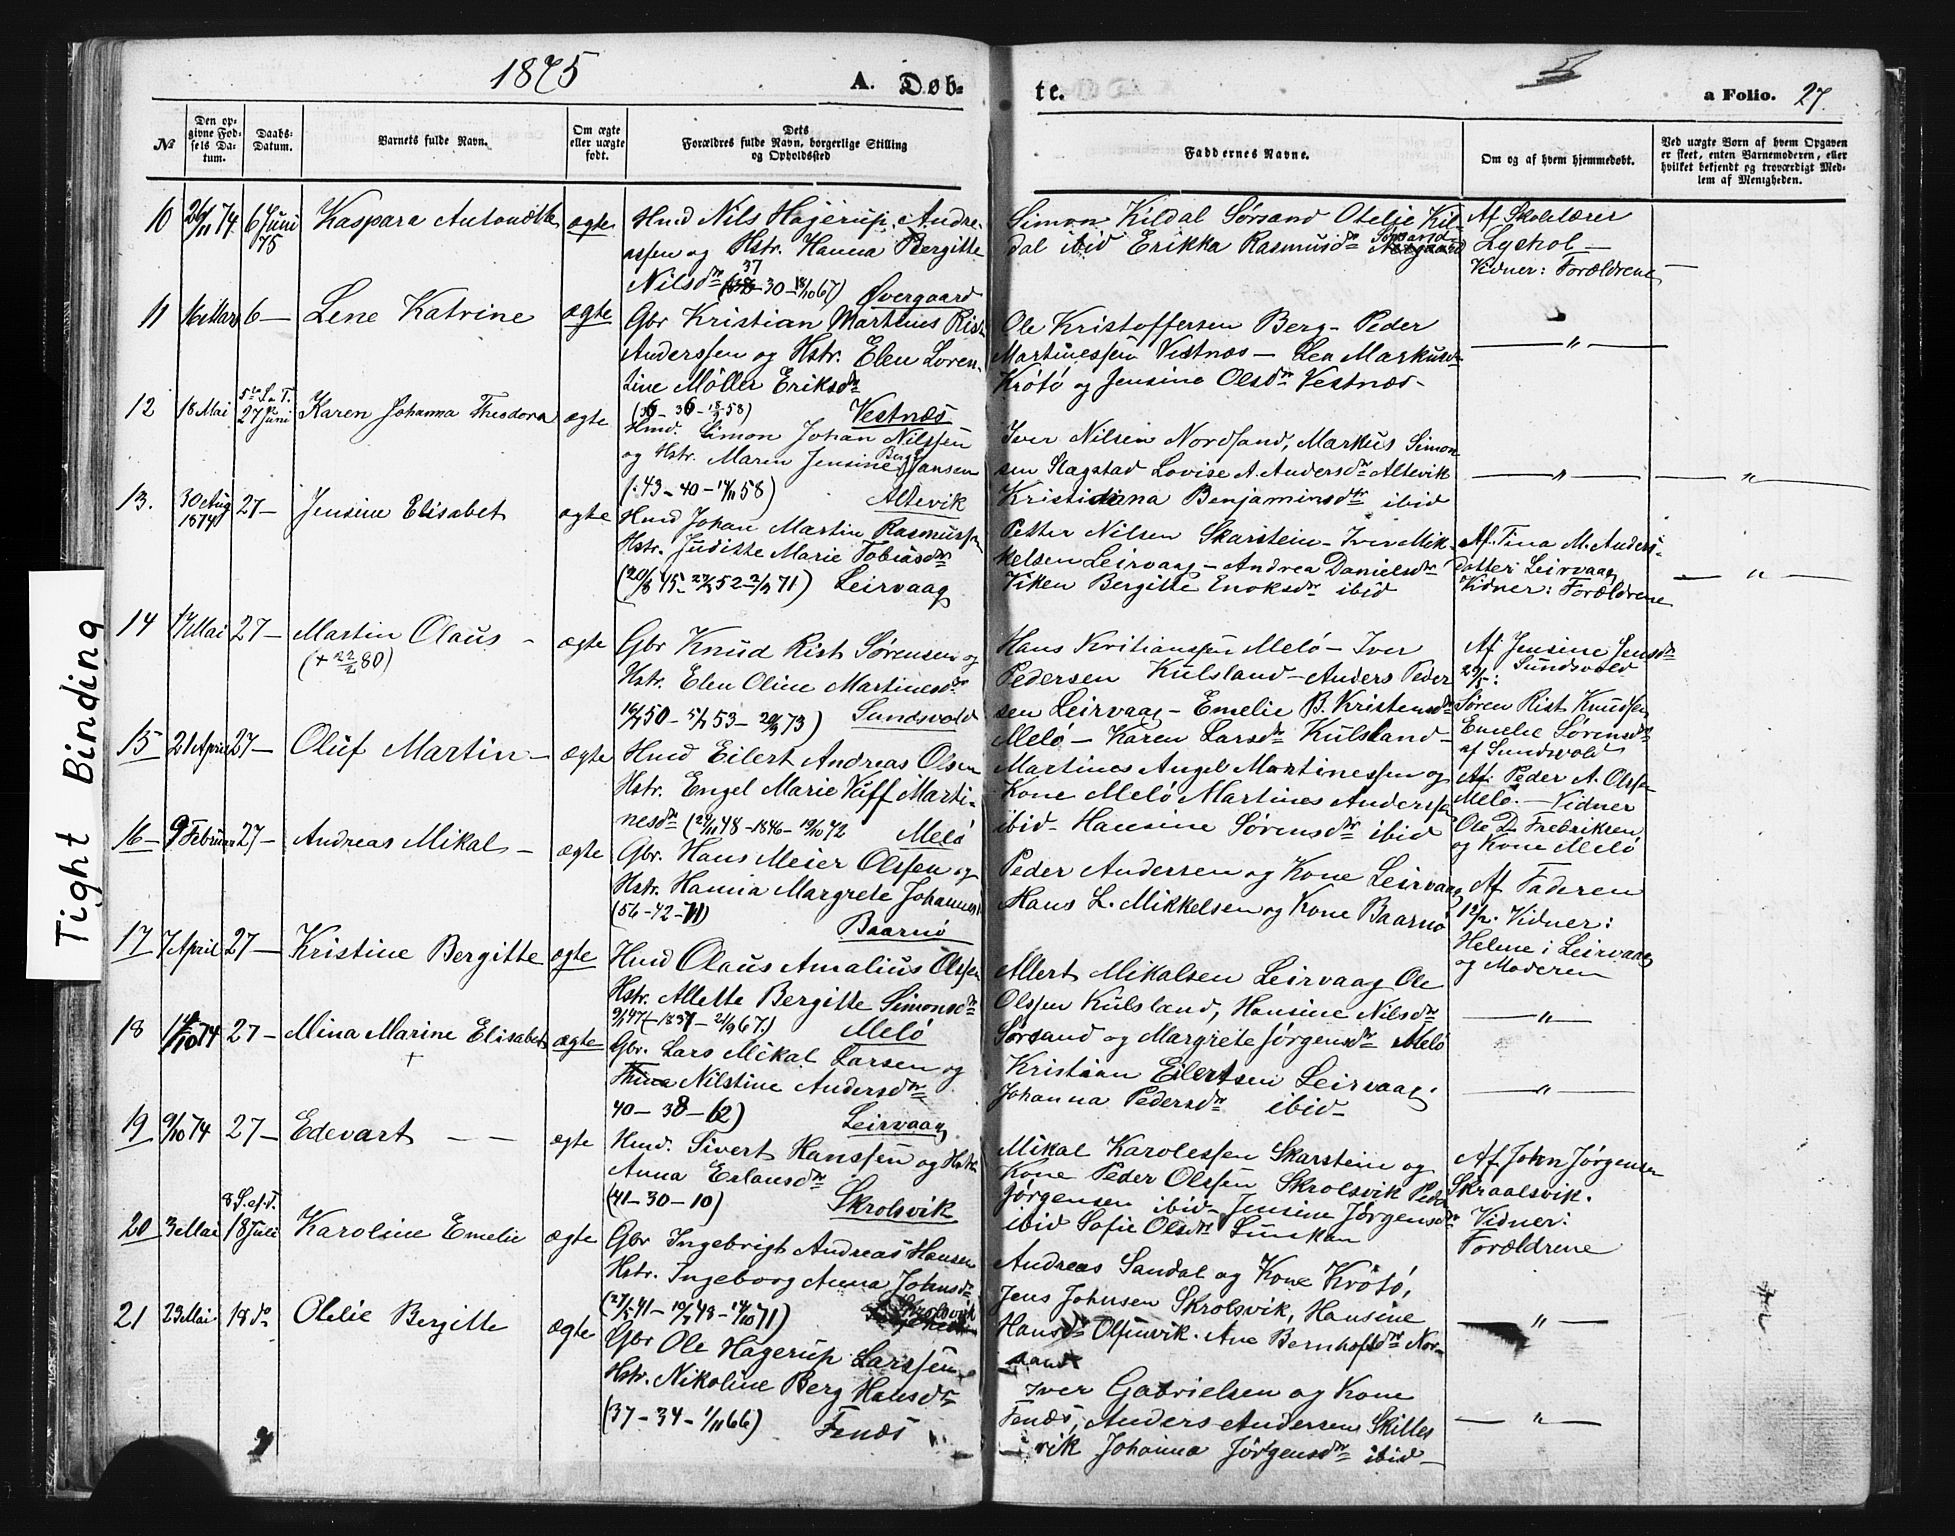 1875
A. Døb-
te.
a Folio. 27.
№
Den op-
givne Fød-
sels Da-
tum.
Daabs-
Datum.
Barnets fulde Navn.
Om ægte
eller uægte
født.
Dets
Forældres fulde Navn, borgerlige Stilling
og Opholdssted
Faddernes Navne.
Om og af hvem hjemmedøbt.
Ved uægte Børn af hvem Opgaven
er skeet, enten Barnemoderen, eller
hvilket bekjendt og troværdigt Med-
lem af Menigheden.
Tight Binding
10 26/11 74 6 Juni 75 Kaspara ægte
Hmd Nils Hagerup Andre-
assen og Hstr. Hanna Bergitte
Nilsdtr 37 30 - 18/10 67) Øvergaard
Simon Kildal Sørsand Otelie Kil-
dal ibid Erikka Rasmusdtr Sørsand
Af Skolelærer
Lyshol —
Vidner: Forældrene
11 16 Mars 6 — Lene Katrine ægte
Gbr Kristian Martinus Rist
Anderssen og Hstr. Elen Loren-
tine Møller Eriksdtr
(36 - 36 - 58) Vestnæs
Ole Kristoffersen Berg - Peder
Martinessen Vestnæs — Lea Markusdtr
Krøtø og Jensine Olsdtr Vestnæs -
— " —
12 18 Mai 5te S. e. T. 27 Juni Karen Johanna Theodora ægte
Hmd. Simon Johan Nilssen
og Hstr. Maren Jensine Berg Jansen
(: 43 - 40 - 14/11 58) Altevik
Iver Nilsen Nordsand, Markus Simon-
sen Slagstad Lovise A. Andersdtr Altevik
Kristianna Benjaminsdtr ibid
— " — — " —
13. 30 Aug 1874 27 — Jensine Elisabet ægte
Hmd Johan Martin Rasmussen
Hstr. Juditte Marie Tobiasdtr
(20/8 45 - 52 - 71) Leirvaag
Petter Nilsen Skarstein - Iver Mik-
kelsen Leirvaag - Andrea Danielsdtr
Viken Bergitte Enoksdtr ibid
Af Tina M. Anders-
datter Leirvaag
Vidner: Forældrene
— " —
14 17 Mai 27 — Martin Olaus - ægte
(+ 22/2 80)
Gbr Knud Rist Sørensen og
Hstr. Elen Oline Martinesdtr
50 - 53 - 73) Sundsvold
Hans Kristianssen Melø - Iver
Pedersen Kulsland - Anders Peder
sen Leirvaag - Emelie B. Kristensdtr
Melø — Karen Larsdtr Kulsland -
Af Jensine Jensdtr
26/5: Sundsvold
Søren Rist Knudsen
Emelie Sørensdtr
af Sundsvold
15 21 April 27 — Oluf Martin - ægte
Hmd Eilert Andreas Olsen
Hstr. Engel Marie Marti-
nesdtr (48 - 1846 - 19/10 72 Melø
Martines Angel Martinessen og
Kone Melø Martines Anderssen
ibid - Hansine Sørensdtr ibid
Af: Peder A. Olsen
Melø. — Vidner
Ole D. Fredriksen
og Kone Melø
16 — 9 Februar 27 — Andreas Mikal — ægte
Gbr. Hans Meier Olssen og
Hstr. Hanna Margrete Johannesd
(56 - 42 - 71) Baarnø
Peder Andersen og Kone Leirvaag
Hans L. Mikkelsen og Kone Baarnø
Af Faderen
12/2. Vidner:
Helene i Leirvaag
og Moderen
17 7 April 27 — Kristine Bergitte ægte
Hmd Olaus Amalius Olssen
Hstr. Allette Bergitte Simonsdtr
9/1 47 - 1837 - 21/9 67.) Melø
Allert Mikalsen Leirvaag Ole
Olssen Kulsland, Hansine Nilsdtr
Sørsand og Margrete Jørgensdtr Melø
— " —
18 14/10 74 27 — Mina Marine Elisabet ægte
+
Gbr. Lars Mikal Larsen og
Nilstine Andersdtr
40 - 38 - 62) Leirvaag
Kristian Eilertsen Leirvaag.
Johanna Pedersdtr ibid -
— " —
19 9/10 74 27 — Edevart — — ægte
Hmd. Sivert Hanssen og Hstr
Anna Erlansdtr
(41 - 30 - 10) Skrolsvik
Mikal Karolessen Skarstein og
Kone Peder Olssen Skrolsvik Peder
Jørgensen ibid - Jensine Jørgensdtr
ibid Sofie Olsdtr
Af John Jørgensen
Skraalsvik.
Vidner:
Forældrene
20 3 Mai 8. S. ef. T. 18 Juli Karoline Emelie ægte
Gbr Ingebrigt Andreas Hansen
Hstr. Ingeborg Anna Johnsdtr
41 - 10/7 48 - 14/10 71) Skrolsvik
Andreas Sandal og Kone Krøtø,
Jens Johnsen Skrolsvik, Hansine
Hansdtr Olsenvik. Ane Bernhofsdtr Nor-
sand
— " —
21 23 Mai 18 do Otelie Bergitte ægte
Gbr Ole Hagerup Larssen
Hstr. Nikoline Berg Hansdtr
(37 - 34 - 1/11 66) Fenæs
Iver Gabrielsen og Kone
Fenæs, Anders Andersen Skilles-
vik Johanna Jørgensdtr ibid -
— " —